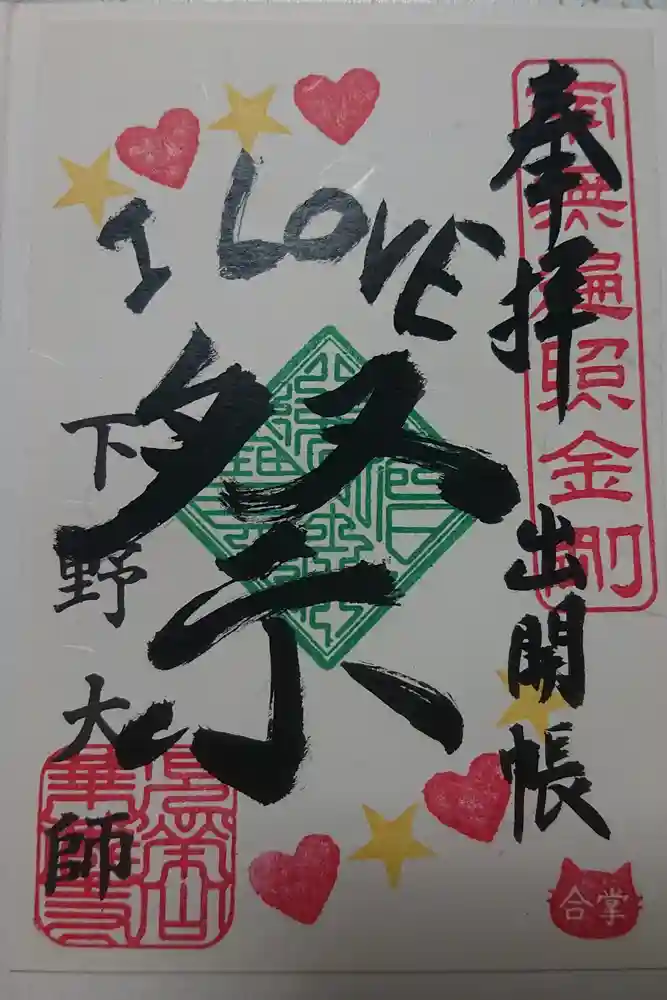 奉拝
出開帳
南無遍照金剛
I LOVE
祭
下野大師
合掌